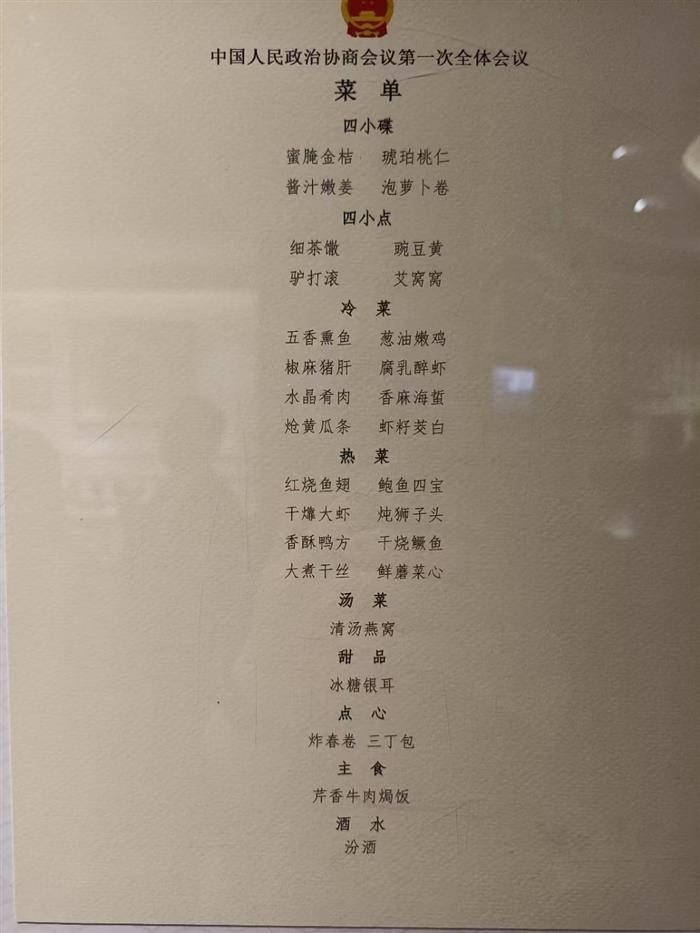 中国人民政治协商会议第一次全体会议
菜 单
四小碟
蜜腌金桔 琥珀桃仁
酱汁嫩姜 泡萝卜卷
四小点
细茶馓 豌豆黄
驴打滚 艾窝窝
冷 菜
五香熏鱼 葱油嫩鸡
椒麻猪肝 腐乳醉虾
水晶肴肉 香麻海蜇
炝黄瓜条 虾籽茭白
热 菜
红烧鱼翅 鲍鱼四宝
干㸆大虾 炖狮子头
香酥鸭方 干烧鳜鱼
大煮干丝 鲜蘑菜心
汤 菜
清汤燕窝
甜 品
冰糖银耳
点 心
炸春卷 三丁包
主 食
芹香牛肉焗饭
酒 水
汾酒